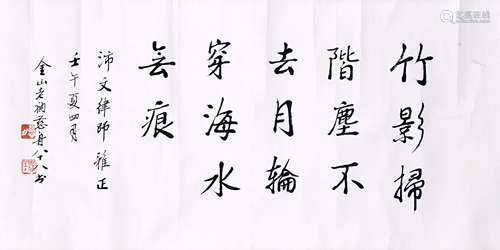 竹影掃
階塵不
去月輪
穿海水
無痕
沛文律師雅正
壬午夏四月
金山老衲慈舟八十八書